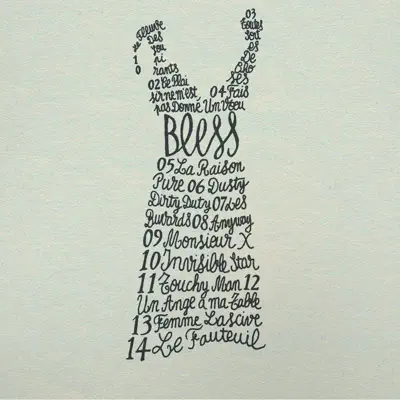 01 Le Fleuve
Des
Sou
pi
rants
02 Le Plai
sir ne m'est
pas Donné
03
Toutes
Sort
es
De
Cho
ses
04 Fais
Un Voeu
Bless
05 La Raison
Pure 06 Dusty
Dirty Duty 07 Les
Buvards 08 Anyway
09 Monsieur X
10 Invisible Star
11 Touchy Man 12
Un Ange à ma Table
13 Femme Lascive
14 Le Fauteuil